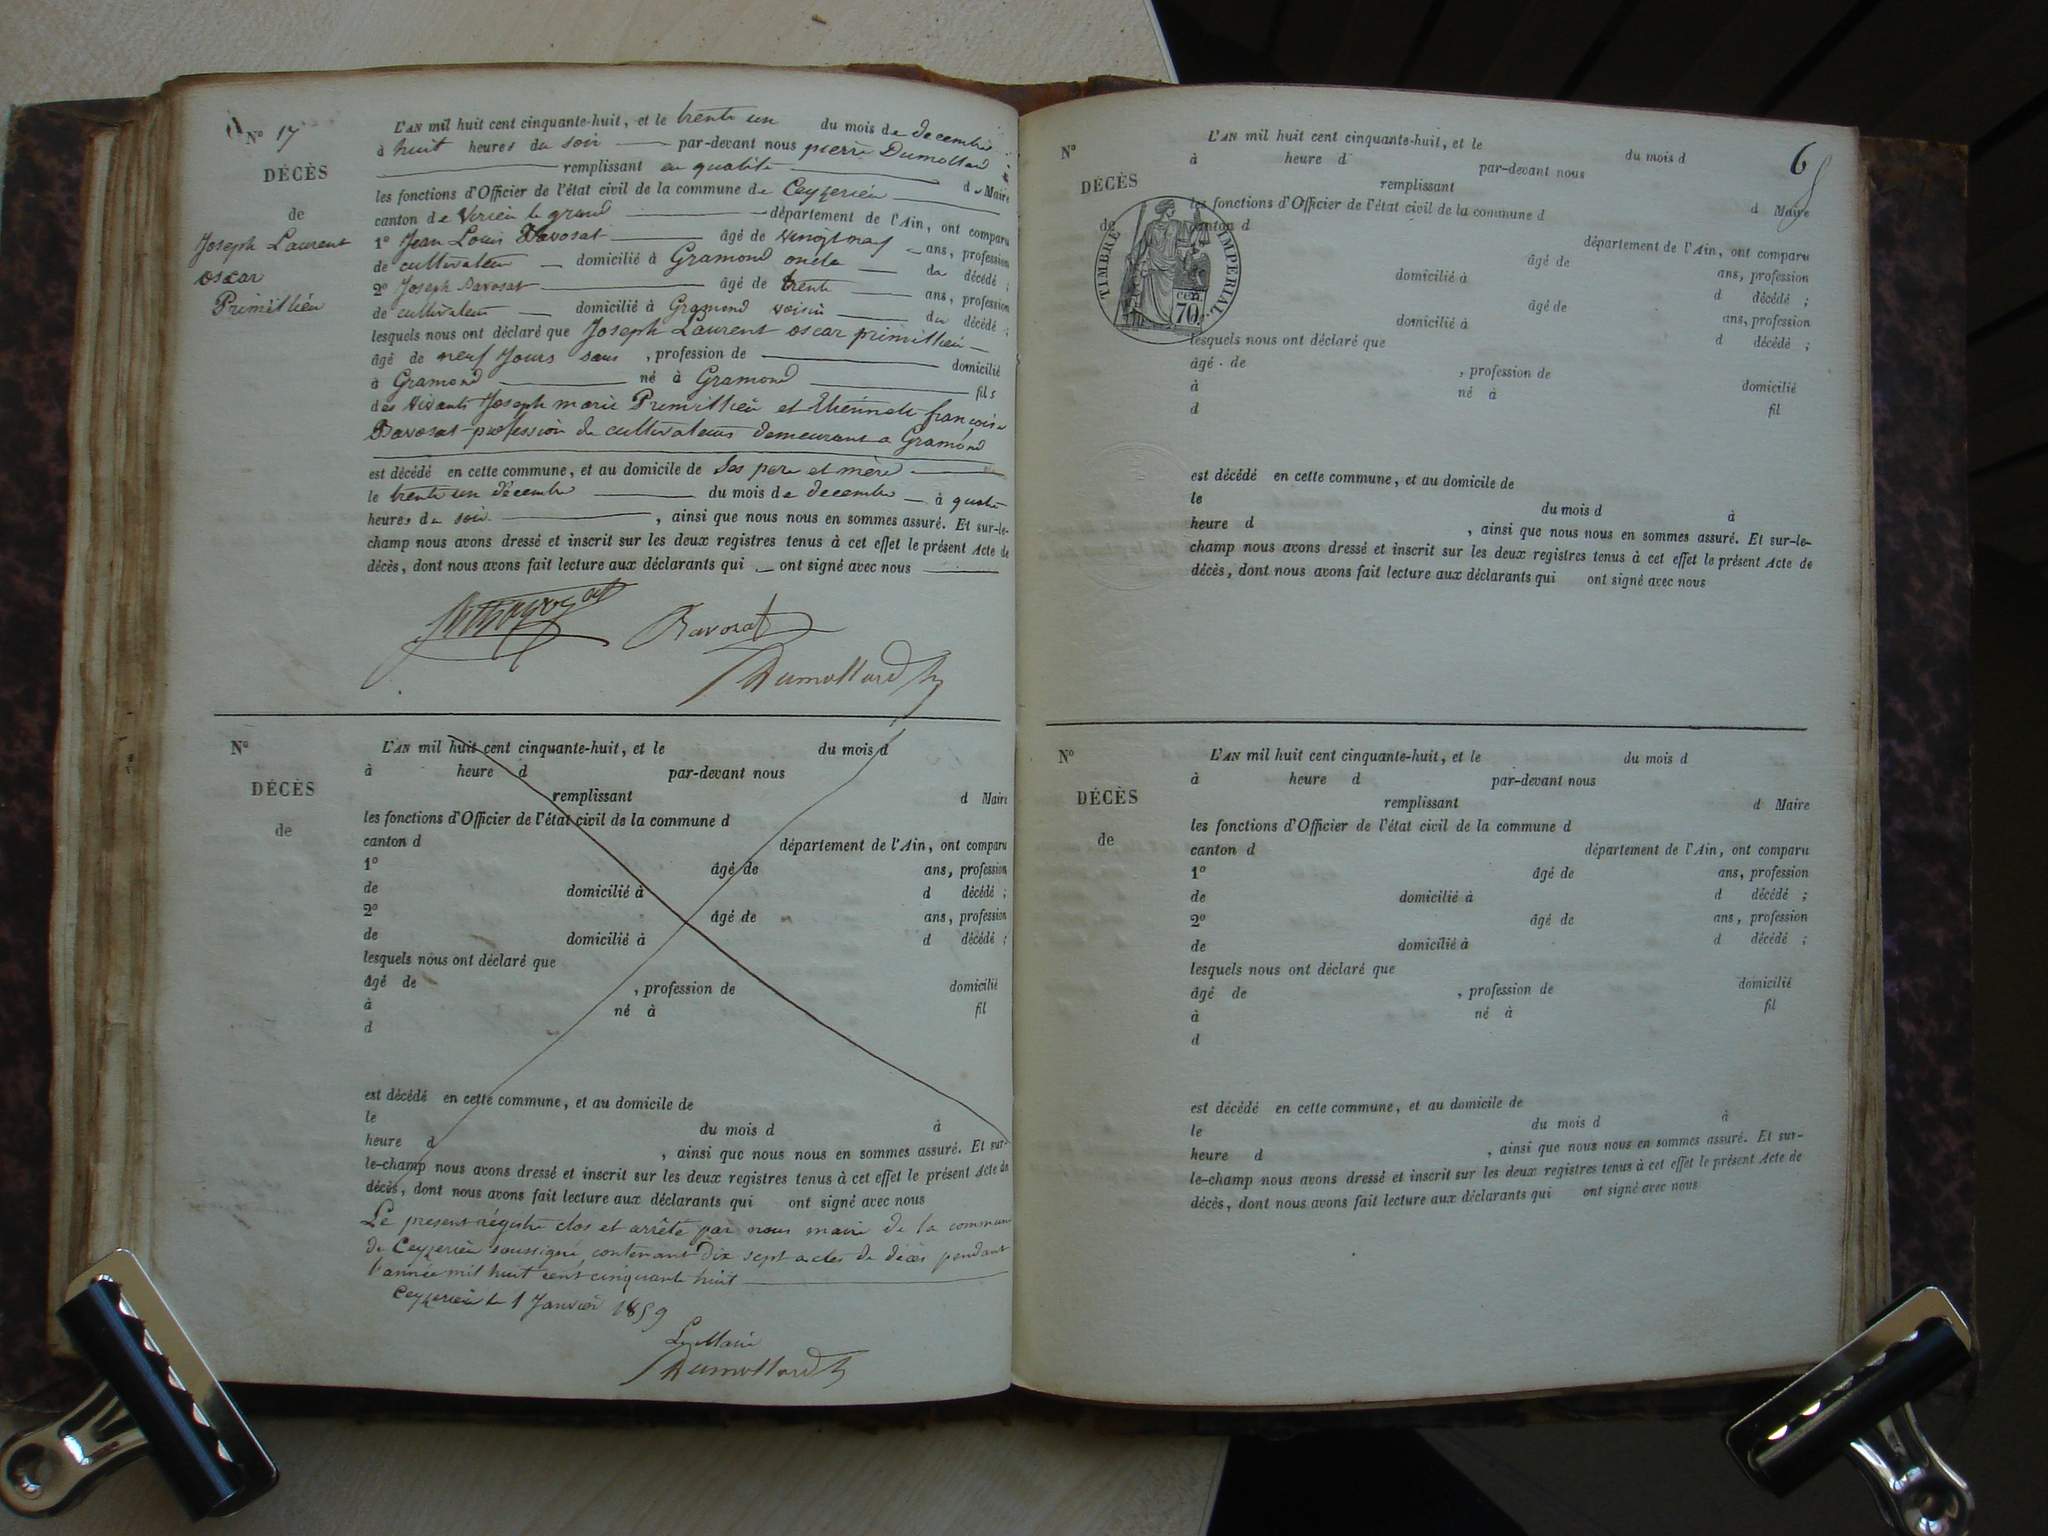 N° 17
DÉCÈS
de
Joseph Laurent
oscar
Primillieu
L'AN mil huit cent cinquante-huit, et le trente un du mois de decembre
à huit heures du soir par-devant nous pierre Dumollard
remplissant en qualité de Maire
les fonctions d'Officier de l'état civil de la commune de Ceyzerieu
canton de Virieu le grand département de l'Ain, ont comparu
1° Jean Louis Davosat âgé de vingt neuf ans, profession
de cultivateur domicilié à Gramond oncle du décédé ;
2° Joseph Davosat âgé de trente ans, profession
de cultivateur domicilié à Gramond voisin du décédé ;
lesquels nous ont déclaré que Joseph Laurent oscar primillieu
âgé de neuf Jours sans , profession de domicilié
à Gramond né à Gramond fils
des vivants Joseph marie Primillieu et Etiennete françoise
Davosat profession de cultivateurs demeurant a Gramond
est décédé en cette commune, et au domicile de Ses pere et mère
le trente un décembre du mois de decembre à quatre
heures du soir , ainsi que nous nous en sommes assuré. Et sur-le-
champ nous avons dressé et inscrit sur les deux registres tenus à cet effet le présent Acte de
décès, dont nous avons fait lecture aux déclarants qui ont signé avec nous
Davosat
Dumollard
N°
DÉCÈS
de
L'AN mil huit cent cinquante-huit, et le du mois d
à heure d par-devant nous
remplissant d Maire
les fonctions d'Officier de l'état civil de la commune d
canton d département de l'Ain, ont comparu
1° âgé de ans, profession
de domicilié à d décédé ;
2° âgé de ans, profession
de domicilié à d décédé ;
lesquels nous ont déclaré que
âgé de , profession de domicilié
à né à fil
d
est décédé en cette commune, et au domicile de
le du mois d à
heure d , ainsi que nous nous en sommes assuré. Et sur-
le-champ nous avons dressé et inscrit sur les deux registres tenus à cet effet le présent Acte de
décès, dont nous avons fait lecture aux déclarants qui ont signé avec nous
Le present régistre clos et arrêté par nous maire de la commune
de Ceyzerieu soussigné, contenant Dix sept actes de décès pendant
l'année mil huit cent cinquante huit
Ceyzerieu le 1 Janvier 1859
Le Maire
Dumollard
6
N°
DÉCÈS
de
TIMBRE IMPÉRIAL
cen. 70
L'AN mil huit cent cinquante-huit, et le du mois d
à heure d par-devant nous
remplissant d Maire
les fonctions d'Officier de l'état civil de la commune d
canton d département de l'Ain, ont comparu
âgé de ans, profession
domicilié à d décédé ;
âgé de ans, profession
domicilié à d décédé ;
lesquels nous ont déclaré que
âgé de , profession de domicilié
à né à fil
d
est décédé en cette commune, et au domicile de
le du mois d à
heure d , ainsi que nous nous en sommes assuré. Et sur-le-
champ nous avons dressé et inscrit sur les deux registres tenus à cet effet le présent Acte de
décès, dont nous avons fait lecture aux déclarants qui ont signé avec nous
N°
DÉCÈS
de
L'AN mil huit cent cinquante-huit, et le du mois d
à heure d par-devant nous
remplissant d Maire
les fonctions d'Officier de l'état civil de la commune d
canton d département de l'Ain, ont comparu
1° âgé de ans, profession
de domicilié à d décédé ;
2° âgé de ans, profession
de domicilié à d décédé ;
lesquels nous ont déclaré que
âgé de , profession de domicilié
à né à fil
d
est décédé en cette commune, et au domicile de
le du mois d à
heure d , ainsi que nous nous en sommes assuré. Et sur-
le-champ nous avons dressé et inscrit sur les deux registres tenus à cet effet le présent Acte de
décès, dont nous avons fait lecture aux déclarants qui ont signé avec nous